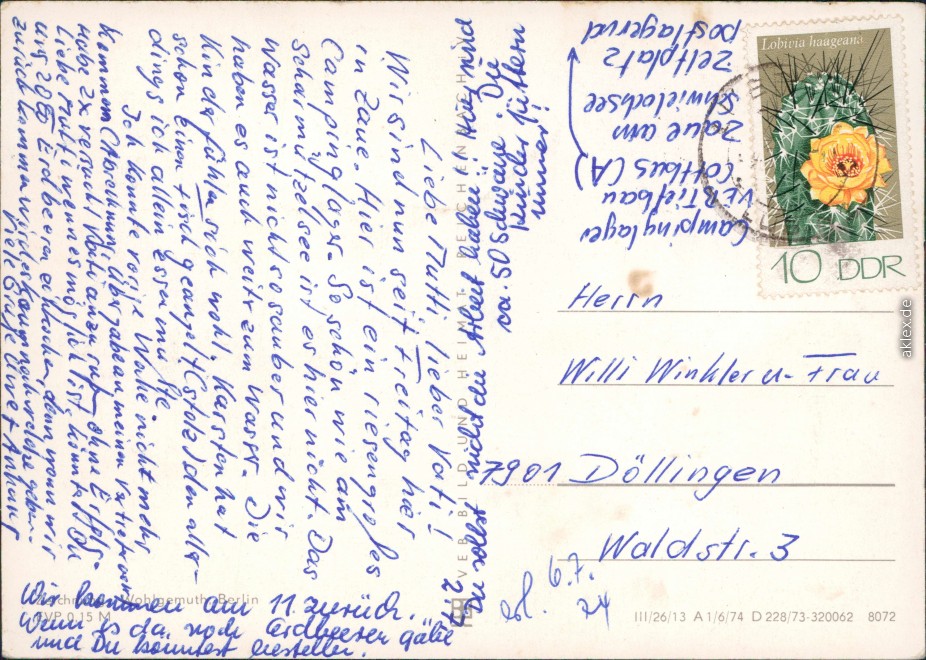 Liebe Mutti, lieber Vati!
Wir sind nun seit Freitag hier
in Zaue. Hier ist ein riesengroßes
Campinglager. So schön wie am
Scharmützelsee ist es hier nicht. Das
Wasser ist nicht so sauber und wir
haben es auch weit zum Wasser. Die
Kinder fühlen sich wohl. Karsten hat
schon einen Fisch geangelt (Stolz) den aller-
dings ich allein essen mußte.
Ich konnte vorige Woche nicht mehr
kommen
habe 2x versucht Vati anzurufen ohne Erfolg.
Liebe Mutti wenn es möglich ist, könntest Du
uns Erdbeeren einkochen, denn wenn wir
zurück kommen wird es kaum noch welche geben.
Viele Grüße
Wir kommen am 11. zurück.
Wenn es da noch Erdbeeren gäbe
und Du könntest bestellen.
Du sollst nicht die Arbeit haben. Hier sind
ca. 50 Schweine Die
Kinder füttern
immer
Campinglager
VEB Tiefbau
Cottbus (A)
Zaue am
Schwielochsee
Zeltplatz
postlagernd
Lobivia haageana
10 DDR
Herrn
Willi Winkler u. Frau
7901 Döllingen
Waldstr. 3
6.7.
VEB BILD UND HEIMAT REICHENBACH
Wohlgemuth, Berlin
EVP 0,15 M
III/26/13 A 1/6/74 D 228/73-320062 8072
aklex.de